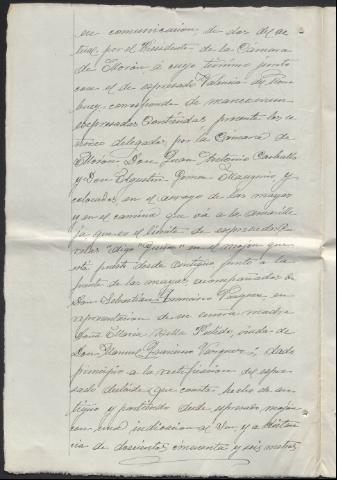 en comunicacion de dos del ac
tual, por el Presidente de la Cámara
de Morón, á cuyo termino junto
con el de expresado Valencia del
corresponde de mancomun
expresadas Contiendas presente los se
ñores delegados, por la Cámara de
Morón Don Juan Antonio
y Don Agustin Gomez y
colocados en el arroyo de las mayas
y en el camino que va á la
ja que es el limite de expresada
digo en el mojon que
está puesto desde antiguo junto á la
fuente de las mayas, acompañados de
Don Sebastian Francisco Vazquez, en
representacion de su señora madre
Doña Maria Pulido, viuda de
Don Manuel Vazquez; dado
principio á la rectificacion de expre
sado deslinde que consta hecho de an
tiguo y partiendo desde expresado mojon
con una indicacion al Sur y a distan
cia de doscientos cincuenta y seis metros